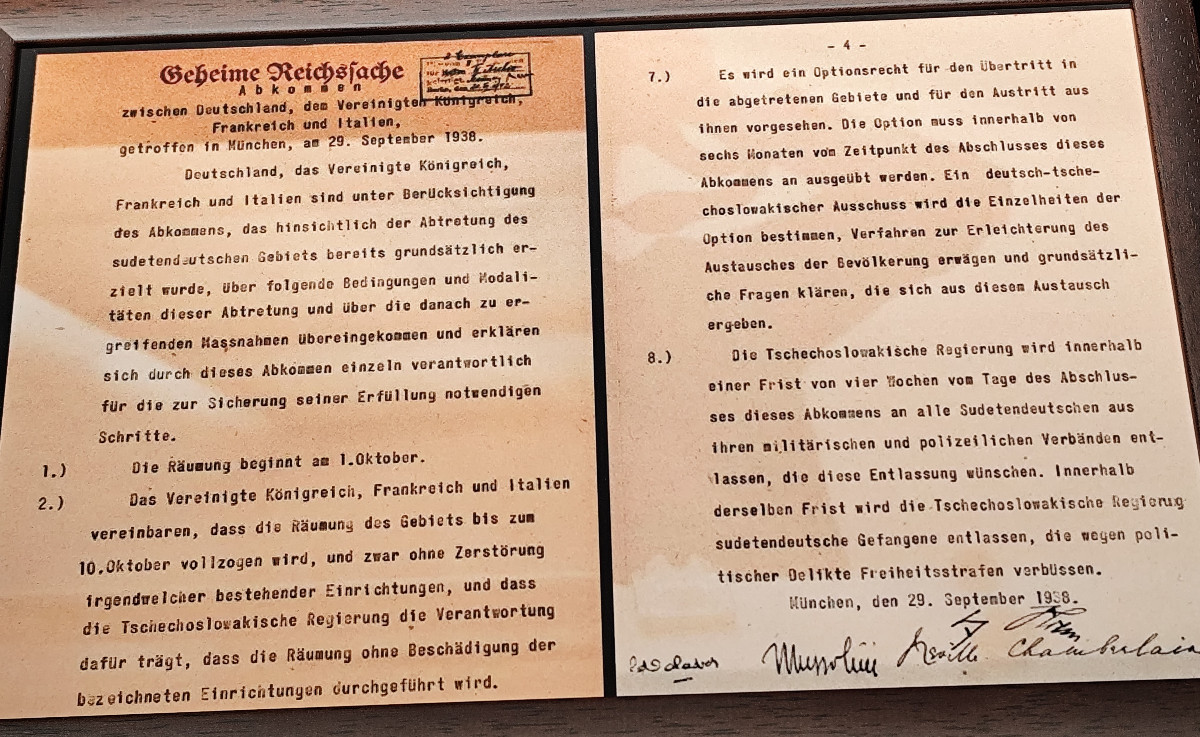 Geheime Reichssache
Abkommen
zwischen Deutschland, dem Vereinigten Königreich,
Frankreich und Italien,
getroffen in München, am 29. September 1938.
Deutschland, das Vereinigte Königreich,
Frankreich und Italien sind unter Berücksichtigung
des Abkommens, das hinsichtlich der Abtretung des
sudetendeutschen Gebiets bereits grundsätzlich er-
zielt wurde, über folgende Bedingungen und Modali-
täten dieser Abtretung und über die danach zu er-
greifenden Massnahmen übereingekommen und erklären
sich durch dieses Abkommen einzeln verantwortlich
für die zur Sicherung seiner Erfüllung notwendigen
Schritte.
1.) Die Räumung beginnt am 1.Oktober.
2.) Das Vereinigte Königreich, Frankreich und Italien
vereinbaren, dass die Räumung des Gebiets bis zum
10.Oktober vollzogen wird, und zwar ohne Zerstörung
irgendwelcher bestehender Einrichtungen, und dass
die Tschechoslowakische Regierung die Verantwortung
dafür trägt, dass die Räumung ohne Beschädigung der
bezeichneten Einrichtungen durchgeführt wird.
- 4 -
7.) Es wird ein Optionsrecht für den Übertritt in
die abgetretenen Gebiete und für den Austritt aus
ihnen vorgesehen. Die Option muss innerhalb von
sechs Monaten vom Zeitpunkt des Abschlusses dieses
Abkommens an ausgeübt werden. Ein deutsch-tsche-
choslowakischer Ausschuss wird die Einzelheiten der
Option bestimmen, Verfahren zur Erleichterung des
Austausches der Bevölkerung erwägen und grundsätzli-
che Fragen klären, die sich aus diesem Austausch
ergeben.
8.) Die Tschechoslowakische Regierung wird innerhalb
einer Frist von vier Wochen vom Tage des Abschlus-
ses dieses Abkommens an alle Sudetendeutschen aus
ihren militärischen und polizeilichen Verbänden ent-
lassen, die diese Entlassung wünschen. Innerhalb
derselben Frist wird die Tschechoslowakische Regierug
sudetendeutsche Gefangene entlassen, die wegen poli-
tischer Delikte Freiheitsstrafen verbüssen.
München, den 29. September 1938.
Mussolini Neville Chamberlain